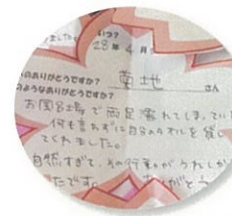 いつ？
28年 4月
のありがとうですか？ 菊地 さん
のようなありがとうですか？
お風呂場で両足濡れてしまってい
何も言わずに自分のタオルを貸し
てくれました。
自然すぎて、その行動がうれしか
たです。 がとう